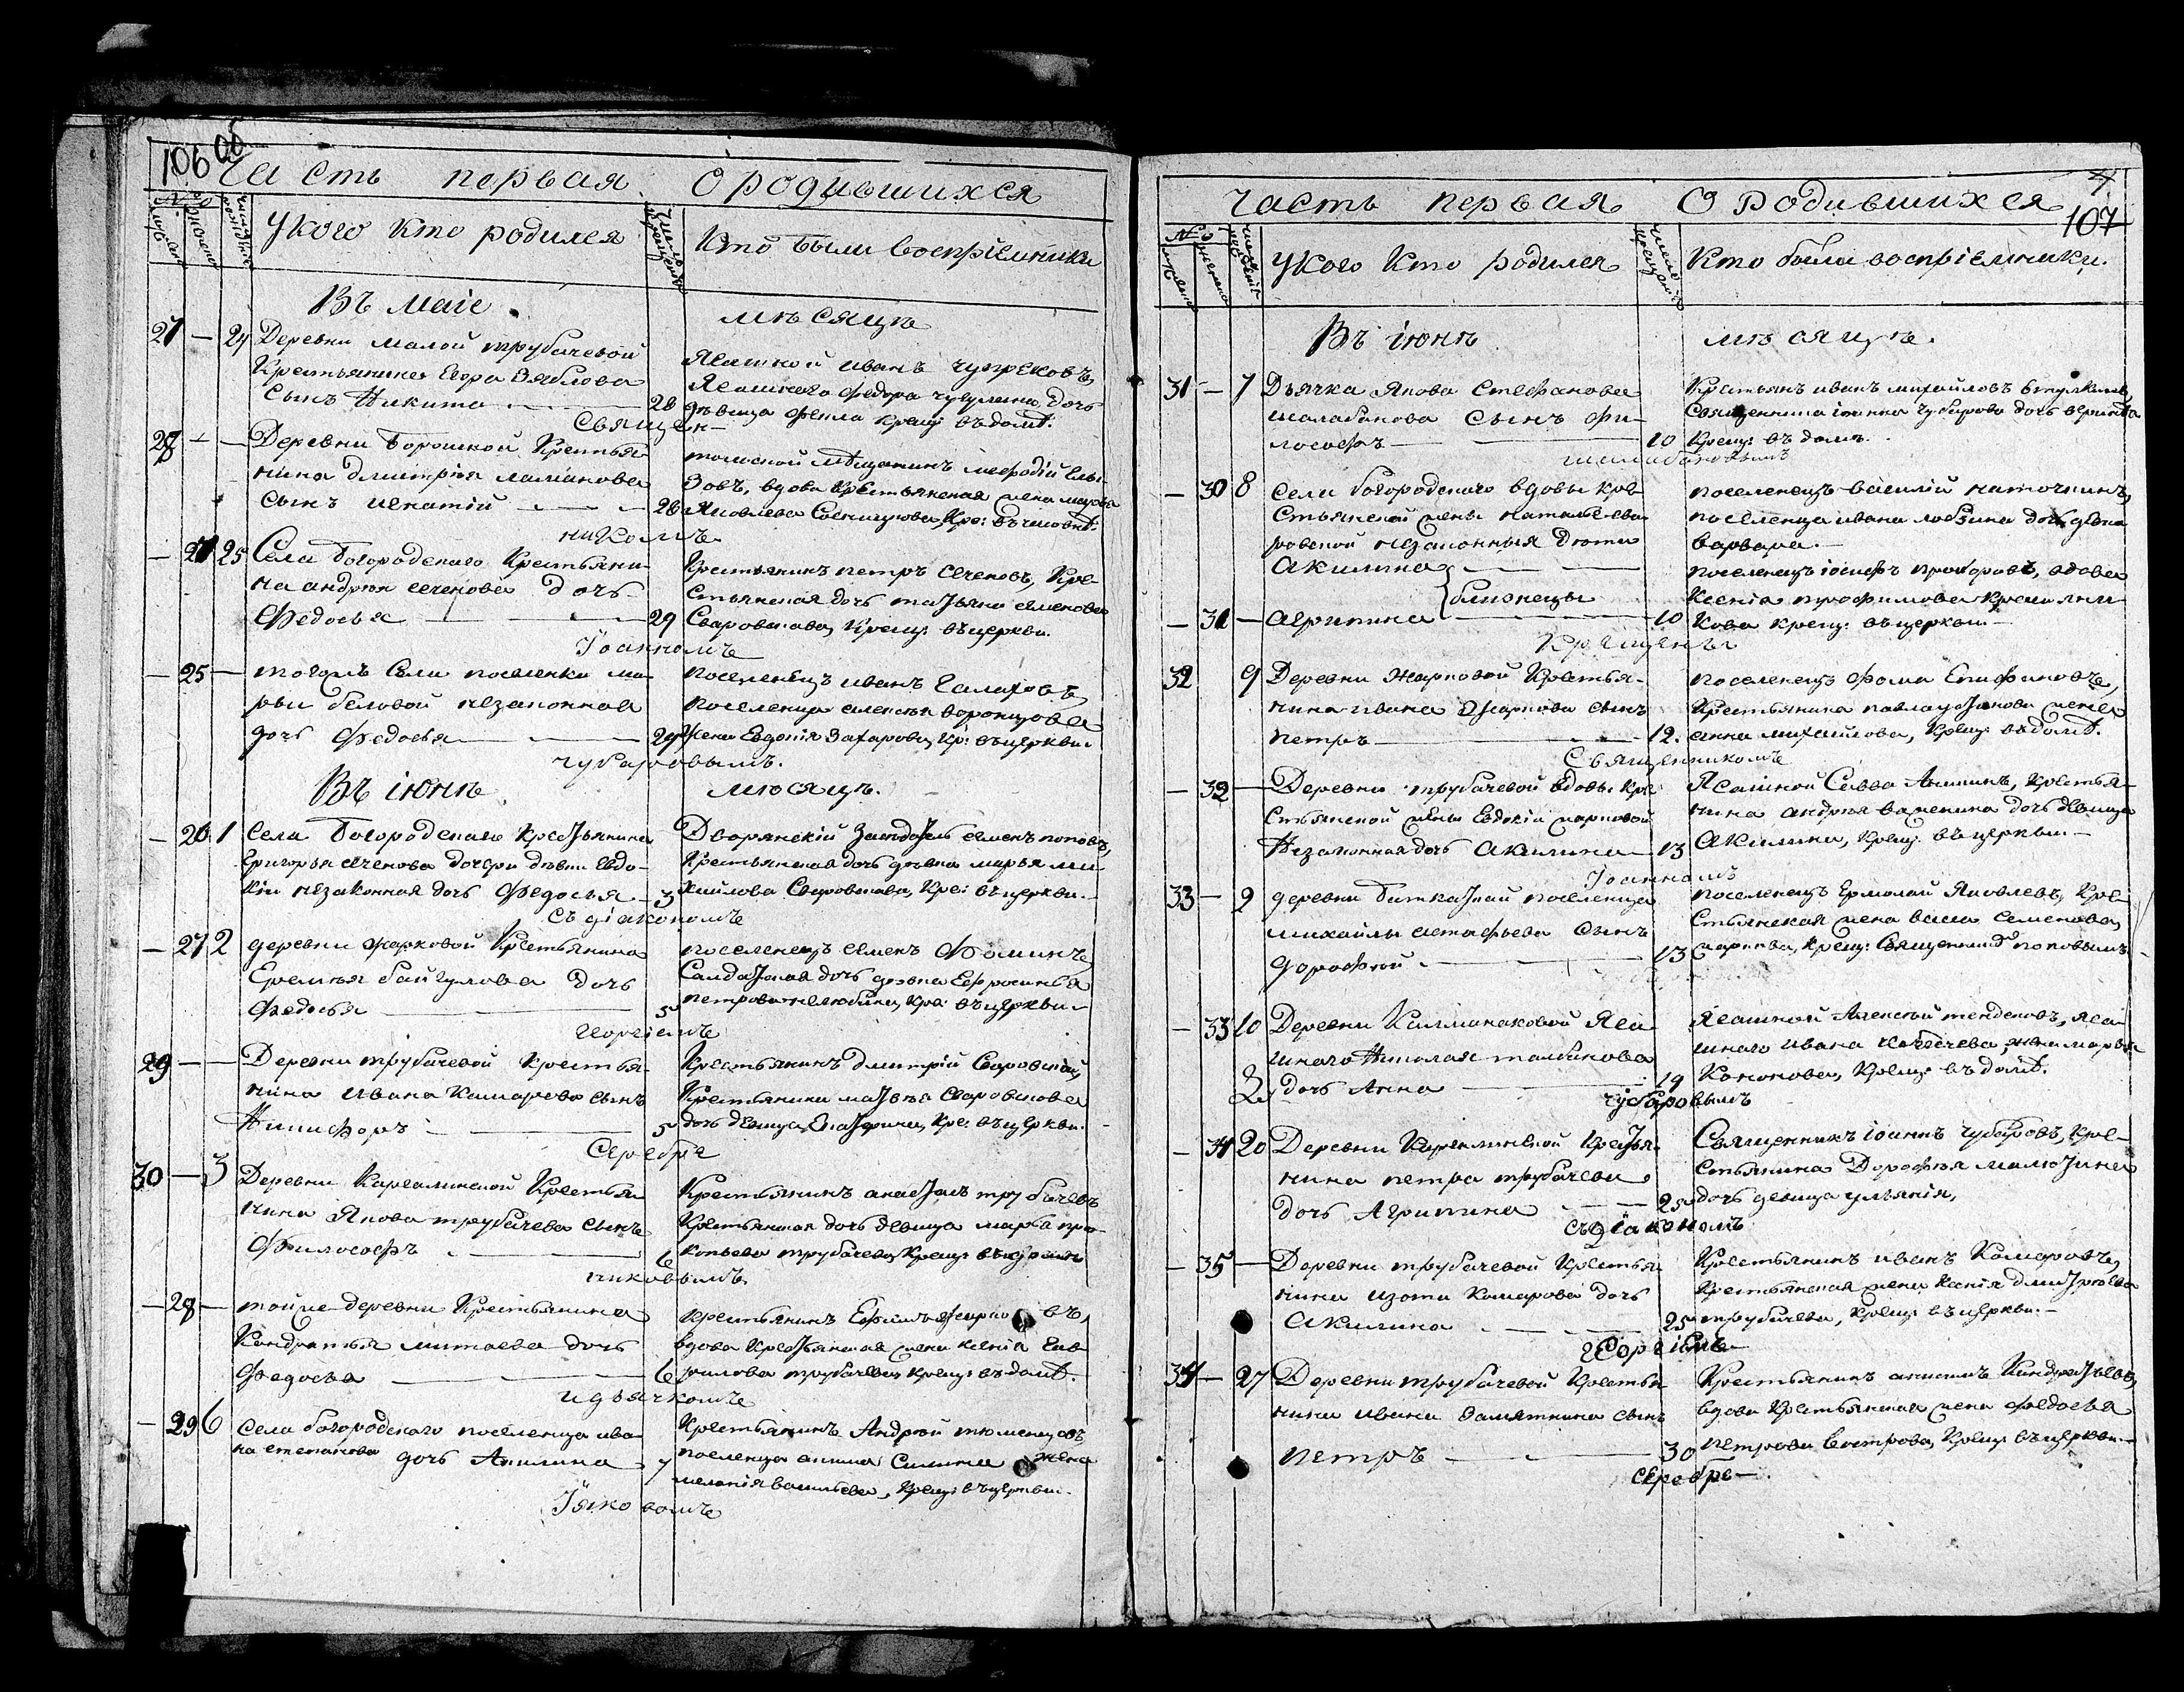 106 об
Часть первая О родившихся
У кого кто родился
Кто были восприемники
Въ маіе
мѣсяцѣ
27 — 24 Деревни малой трубачевой
Крестьянина Егора Зяблова
Сынъ Никита — 28
Ясашной иванъ чугрековъ,
Ясашнаго федора
дочь
дѣвица Фекла крещ: въ домѣ.
Священ-
28 — — Деревни Боровской Крестья-
нина дмитрія
сынъ игнатій — 28
томской мѣщанинъ мефодій
зовъ, вдова крестьянская жена марѳа
Яковлева
никомъ
— 25 Села Богородскаго Крестьяни-
на андрея сеченова дочь
Федосья — 29
Крестьянинъ петръ сеченовъ, Кре-
стьянская дочь татьяна семенова
Сваровскова, Крещ: въ церкви.
Іоанномъ
— 25 — тогожъ Села поселенки ма-
рьи беловой незаконная
дочь Федосья — 29
Поселенецъ иванъ Галаховъ,
поселенца алексѣя воронцова
жена Евдокія Захарова, Кр: въ церкви.
чубаровымъ.
Въ іюнѣ
мѣсяцѣ.
— 26 1 Села Богородскаго Крестьянина
Григорья сеченова дочери дѣвки Евдо-
кіи незаконная дочь Федосья — 3
Дворянскій Засѣдатель семенъ поповъ,
Крестьянская дочь дѣвка марья ми-
хайлова Сваровскова, Кре: въ церкви.
Съ діакономъ
— 27 2 деревни жарковой Крестьянина
Еремѣя байгулова дочь
Федосья — 5
поселенецъ семенъ Фоминъ,
Салдатская дочь дѣвка Ефросинья
петрова нелюбина, Кре: въ церкви.
Георгіемъ
29 — — Деревни трубачевой крестья-
нина Ивана Камарова сынъ
Никифоръ — 5
Крестьянинъ дмитрій Сваровской,
Крестьянина матвѣя Сваровскова
дочь дѣвица Екатерина, Кре: въ церкви.
Серебре
30 — 3 Деревни Каргалинской Крестья-
нина Якова трубачева сынъ
Философъ — 6
Крестьянинъ
трубачевъ
Крестьянская дочь дѣвица марѳа про-
копьева трубачева, Крещ: въ домѣ
никовымъ.
— 28 — тойже деревни Крестьянина
Кондратья митаева дочь
Федосья — 6
крестьянинъ Ефимъ
въ,
вдова Крестьянская жена ксенія
трубачева крещ: въ домѣ.
и дьячкомъ
— 29 6 Села богородскаго поселенца ива-
на степанова дочь Акилина — 7
Крестьянинъ Андрей тюменцовъ,
поселенца
Силина жена
меланія васильева, крещ: въ церкви.
Іяковомъ
107
Часть первая О родившихся
У кого кто родился
Кто были восприемники.
Въ іюнѣ
мѣсяцѣ.
31 — 7 Дьячка Якова Стефанова
шалабанова сынъ фи-
лософъ — 10
Крестьянъ иванъ михайловъ
Священника іоанна чубарова дочь
Крещ: въ домѣ.
шалабановымъ
— 30 8 Села богородскаго вдовы кре-
стьянской жены натальи
незаконныя дети
Акилина
близнецы
— 31 — Агрипина — 10
поселенецъ василій
поселенца ивана лобзина дочь дѣвка
варвара.
поселенецъ іосифъ прохоровъ, вдова
ксенія трофимова
крещ: въ церкви.
Крещены
32 9 Деревни Жарковой Крестья-
нина ивана Жаркова сынъ
петръ — 12.
поселенецъ фома Епифановъ,
Крестьянина павла
жена
анна михайлова, Крещ: въ домѣ.
Священникомъ
— 32 — Деревни трубачевой вдовы Кре-
стьянской жены Евдокіи
Незаконная дочь Акилина — 13
Ясашной Савва Акининъ, Крестья-
нина андрея
дочь дѣвица
Акилина, Крещ: въ церкви.
Іоанномъ
33 — 9 деревни
поселенца
михайлы астафьева сынъ
дорофей — 13
поселенецъ Ермолай Яковлевъ, Кре-
стьянская жена васса семенова
крещ: Священникомъ поповымъ
— 33 10 Деревни Калмаковой Яса-
шнаго Николая
дочь Анна — 19
Ясашной Алексѣй тенденовъ, яса-
шнаго ивана
жена марѳа
Кононова, Крещ: въ домѣ.
чубаровымъ
— 34 20 Деревни Каргалинской Крестья-
нина петра трубачева
дочь Агрипина — 25
Священникъ іоаннъ чубаровъ, Кре-
стьянина Дорофея малютина
дочь девица ульянія,
съ діакономъ
— 35 — Деревни трубачевой Крестья-
нина изота Комарова дочь
Акилина — 25
Крестьянинъ иванъ Комаровъ,
Крестьянская жена ксенія дмитріева
трубачева, Крещ: въ церкви.
Георгіемъ
34 — 27 Деревни трубачевой Крестья-
нина ивана Замятнина сынъ
петръ — 30
Крестьянинъ анисимъ Кондратьевъ,
вдова Крестьянская жена федосья
петрова вострова, Крещ: въ церкви.
серебре